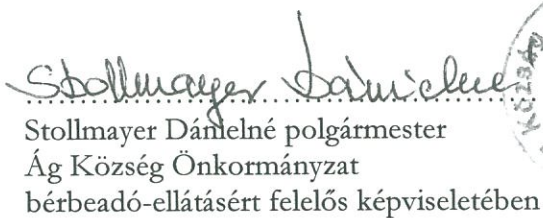 Stollmayer Dánielné
Stollmayer Dánielné polgármester
Ág Község Önkormányzat
bérbeadó-ellátásért felelős képviseletében